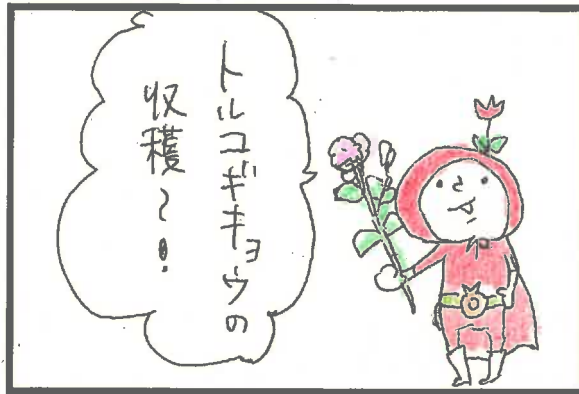 トルコギキョウの
収穫～!